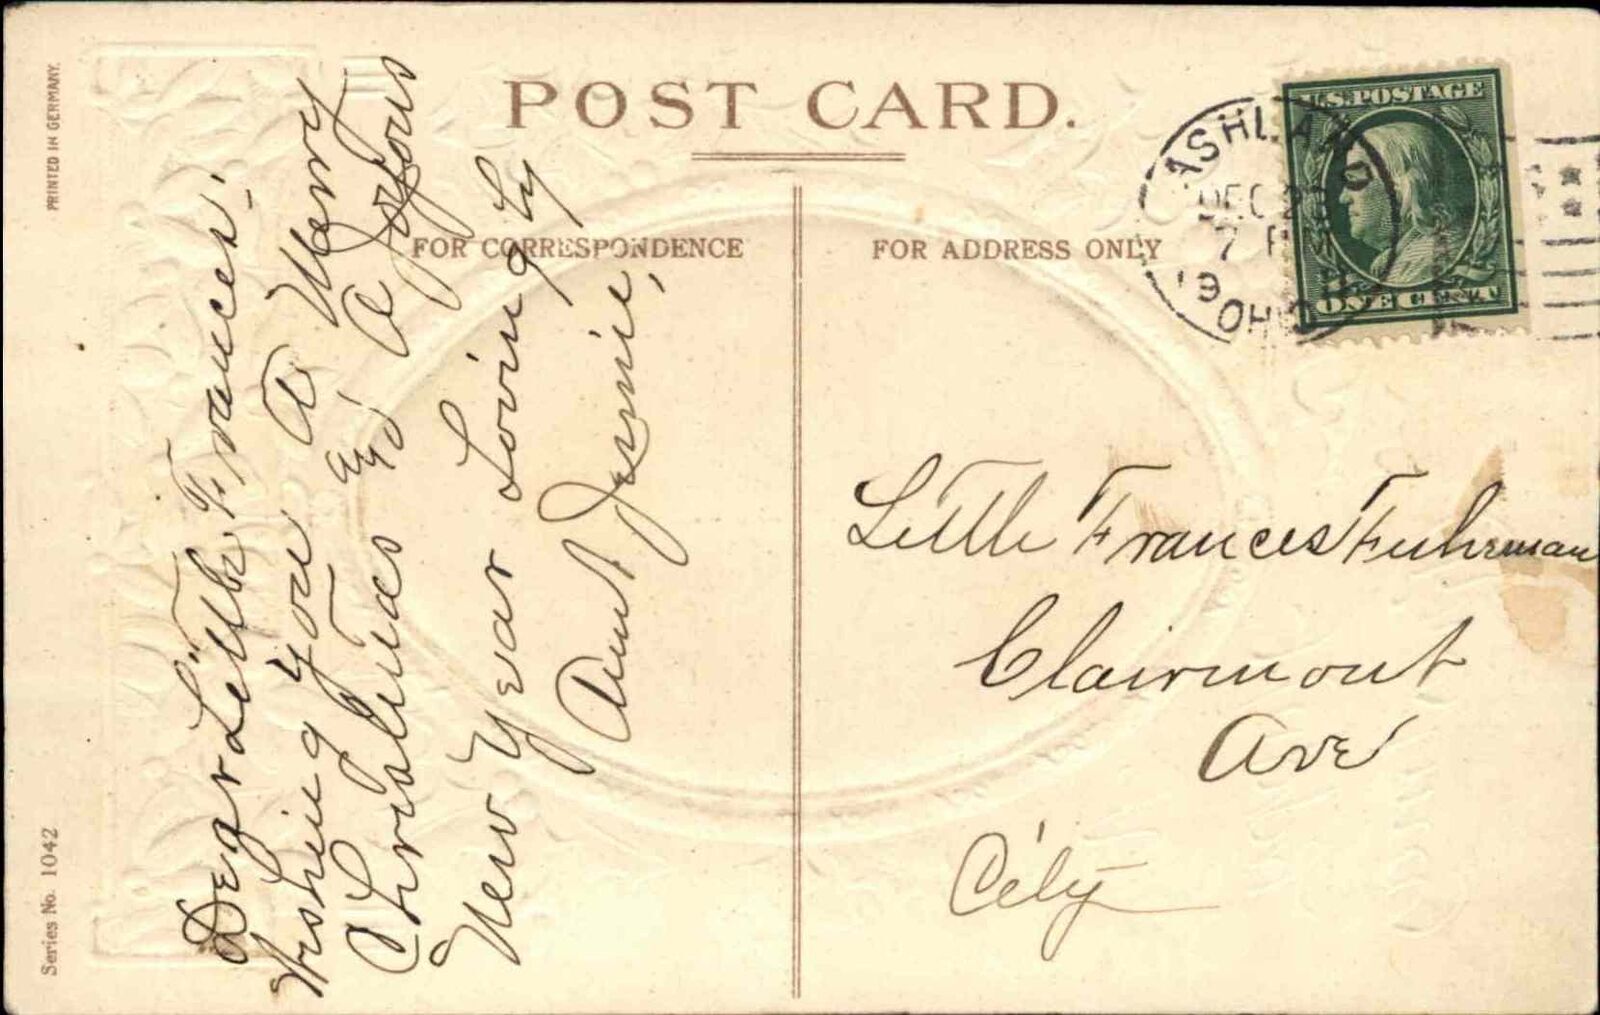 POST CARD.
PRINTED IN GERMANY.
Series No. 1042
FOR CORRESPONDENCE
FOR ADDRESS ONLY
Dear Little Frances:
Wishing you A Merry
Christmas and A Joyous
New Year Lovingly
Aunt Jennie,
ASHLAND
DEC 2
7 PM
19
OHIO
U.S. POSTAGE
ONE CENT
Little Frances Fuhrman
Clairmont
Ave
City